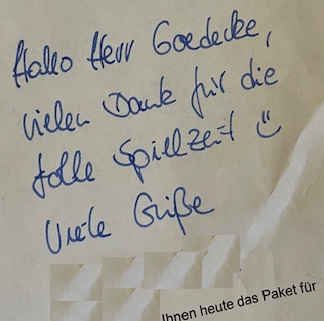 Hallo Herr Goedecke,
vielen Dank für die
tolle Spielzeit ☺
Viele Grüße
Ihnen heute das Paket für